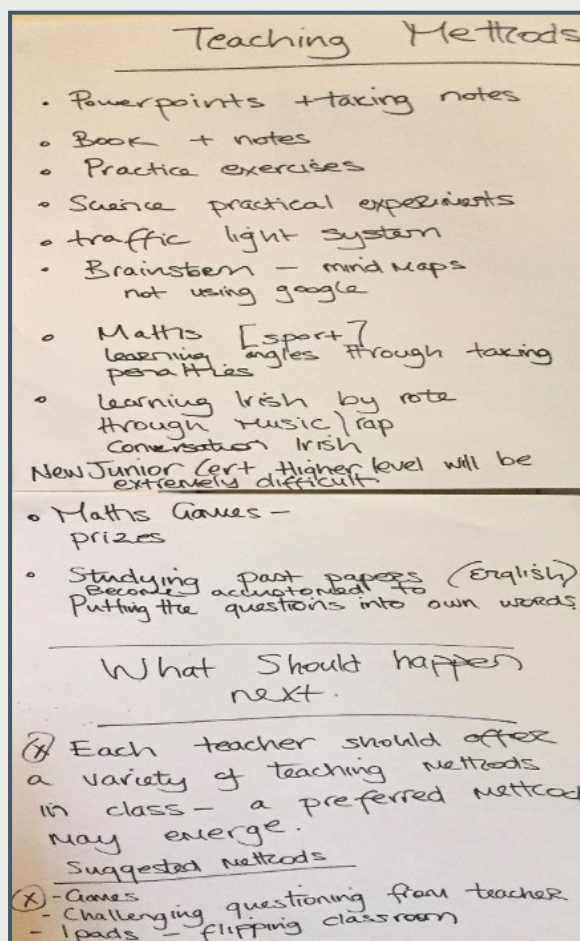 Teaching Methods
• Powerpoints + taking notes
• Book + notes
• Practice exercises
• Science practical experiments
• traffic light system
• Brainstorm - mind maps
not using google
• Maths [sport]
learning angles through taking
penalties
• learning Irish by rote
through Music/rap
Conversation Irish
New Junior Cert Higher level will be
extremely difficult.
• Maths Games -
prizes
• Studying past papers (English)
Become accustomed to
Putting the questions into own words
What Should happen
next.
(x) Each teacher should offer
a variety of teaching methods
in class - a preferred method
may emerge.
Suggested methods
(x) - Games
- Challenging questioning from teacher
- Ipads - flipping classroom